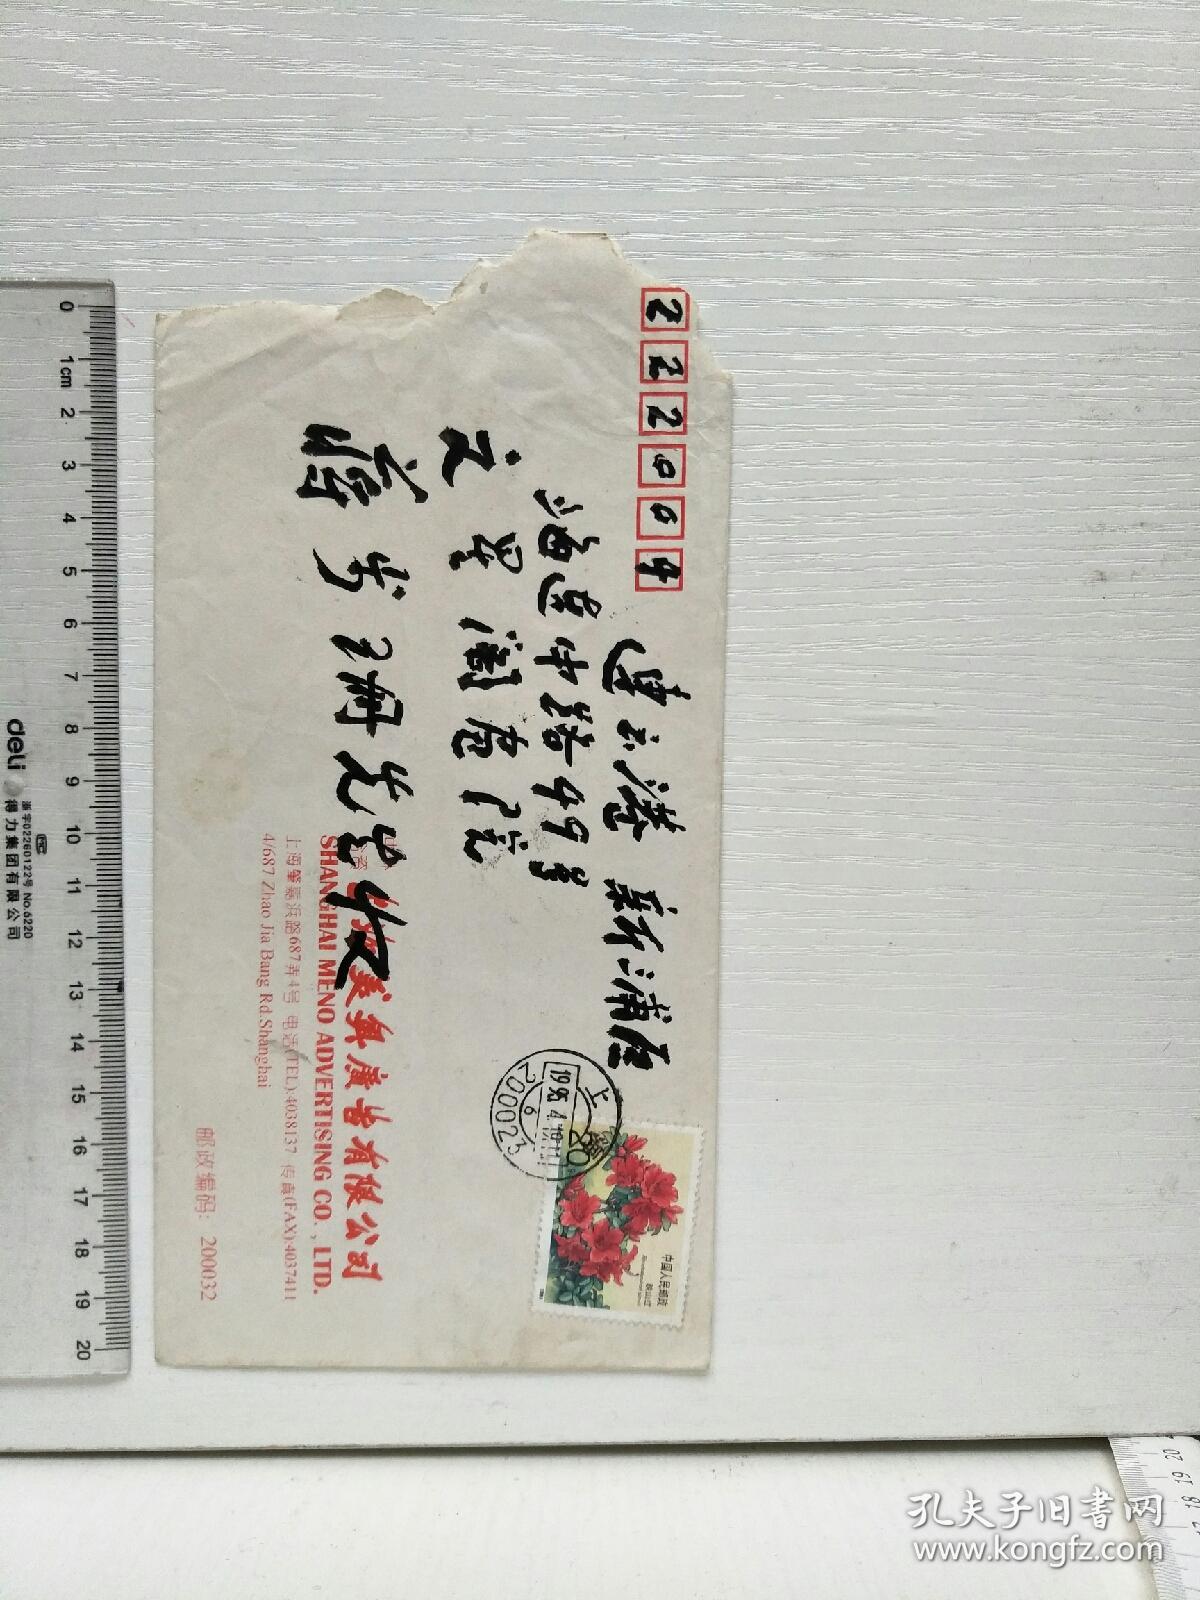 222004
连云港 新浦区
海连中路49号
蒋步 先生收
美奥廣告有限公司
SHANGHAI MENO ADVERTISING CO., LTD.
上海肇嘉浜路687弄4号 电话(TEL):4038137 传真(FAX):4037411
4/687 Zhao Jia Bang Rd.Shanghai
邮政编码: 200032
上
1995.4.10.11
6
200023
80
中国人民邮政
映山红
0 1cm 2 3 4 5 6 7 8 9 10 11 12 13 14 15 16 17 18 19 20
deli
得力集团有限公司
浙字02260122号 No.6220
20
19
18
孔夫子旧书网
www.kongfz.com